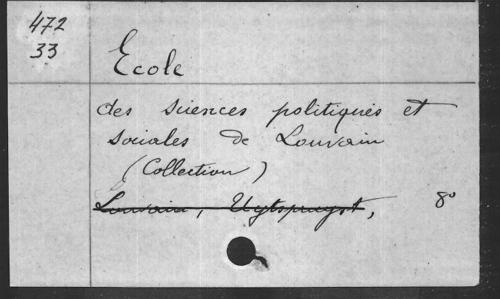 472
33
Ecole
des sciences politiques et
sociales de Louvain
(Collection)
Louvain, Uytspruyst, 8°